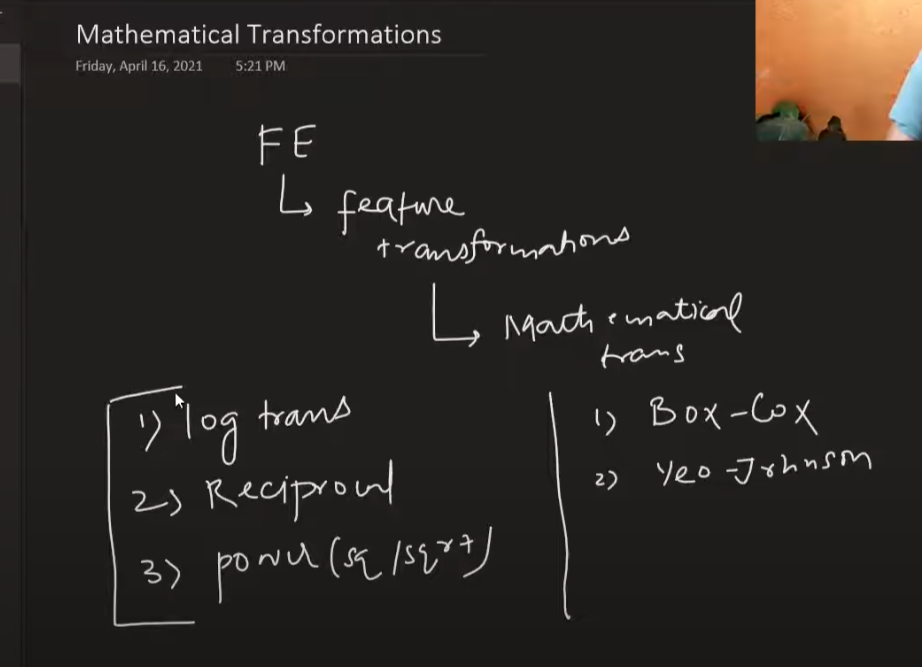 Mathematical Transformations
Friday, April 16, 2021 5:21 PM
FE
feature
transformations
Mathematical
trans
1) log trans
2) Reciprocal
3) power (sq/sqrt)
1) Box-Cox
2) Yeo-Johnson